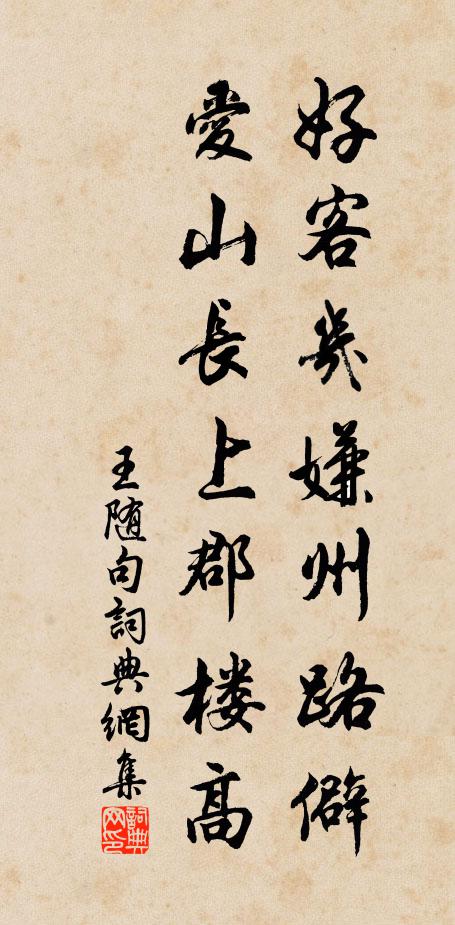 好客幾嫌州路僻
愛山長上郡楼高
王随句詞典網集
詞典網印